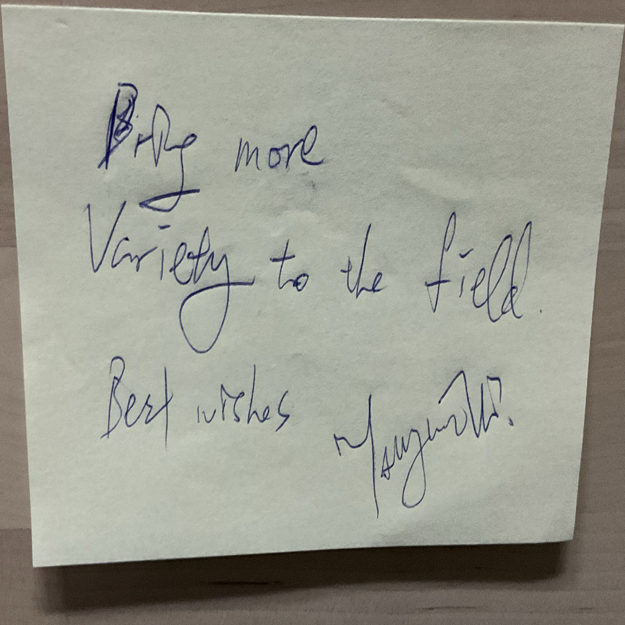 Bring more
Variety to the field.
Best wishes